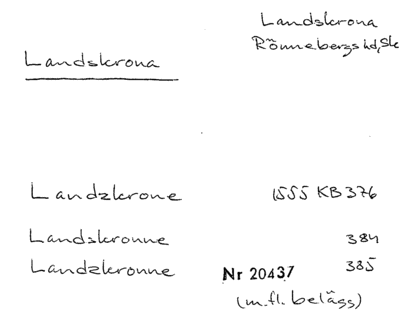 Landskrona
Rönnebergs hd, Sk
Landskrona
Landzkrone 1555 KB 376
Landskronne 384
Landzkronne Nr 20437 385
(m.fl. belägg)